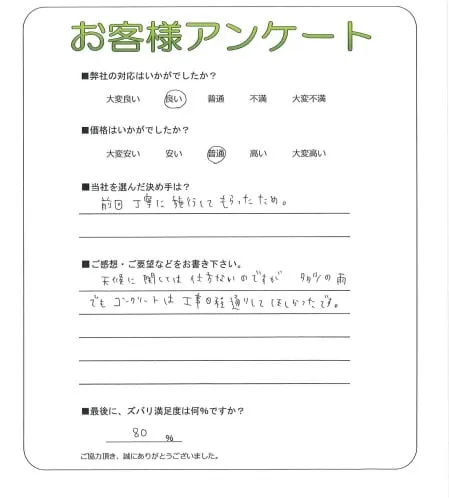 お客様アンケート
■弊社の対応はいかがでしたか？
大変良い 良い 普通 不満 大変不満
■価格はいかがでしたか？
大変安い 安い 普通 高い 大変高い
■当社を選んだ決め手は？
前回 丁寧に施行してもらったため。
■ご感想・ご要望などをお書き下さい。
天候に関しては仕方ないのですが 多少の雨
でもコンクリートは工事日程通りしてほしかったです。
■最後に、ズバリ満足度は何％ですか？
80 ％
ご協力頂き、誠にありがとうございました。